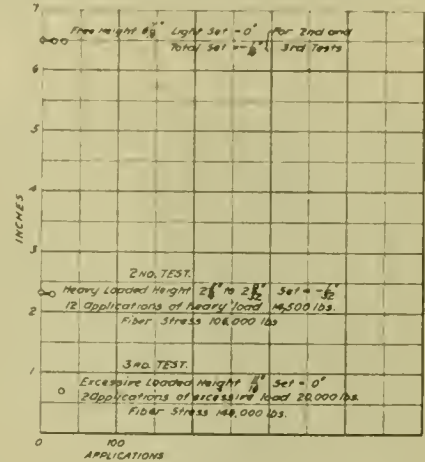 7
Free Height 6 1/2" Light Set = 0" For 2nd and
Total Set = - 3rd Tests
6
5
4
INCHES
3
2ND. TEST.
Heavy Loaded Height to Set = - 1/32"
12 Applications of heavy load 14,500 lbs.
2
Fiber Stress 106,000 lbs
3RD. TEST.
1
Excessive Loaded Height Set = 0"
2 Applications of excessive load 20,000 lbs.
Fiber Stress lbs.
0
0 100
APPLICATIONS